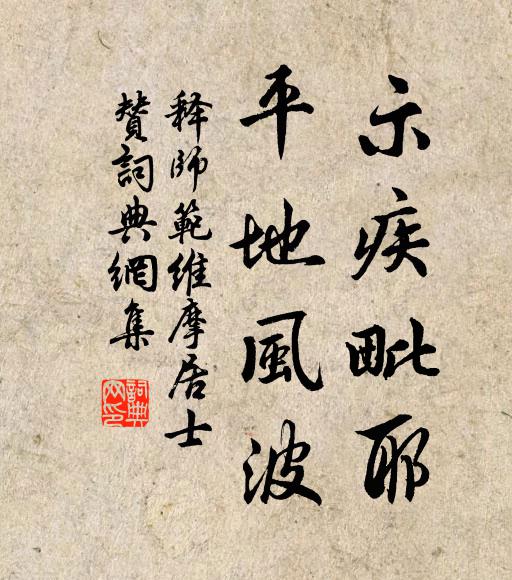 示疾毗耶
平地風波
释師範維摩居士
贊詞典網集
詞典
网印